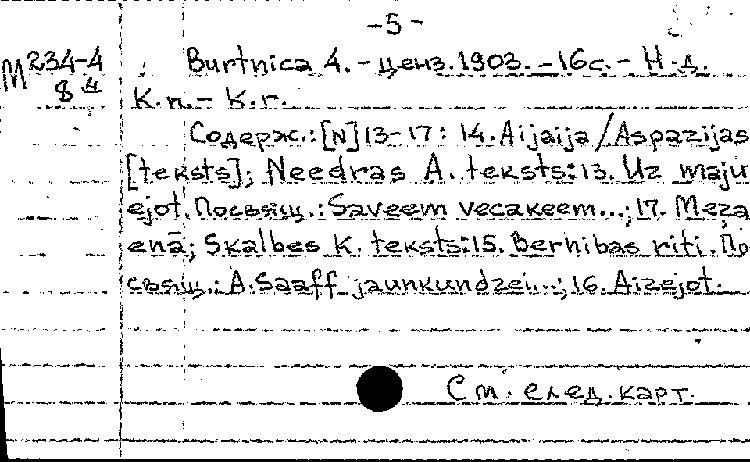 -5-
М 234-4 Burtnica 4. - ценз. 1903. - 16с. - Н.д.
8 4 К.п. - К.г.
Содерж.: [N] 13-17: 14. Aijaija / Aspazijas
[teksts]; Needras A. teksts: 13. Uz maju
ejot. Посвящ.: Saveem vecakeem...; 17. Meza
enā; Skalbes K. teksts: 15. Bernibas riti. По
свящ.: A. Saaff jaunkundzei...; 16. Aizejot.
См. след. карт.